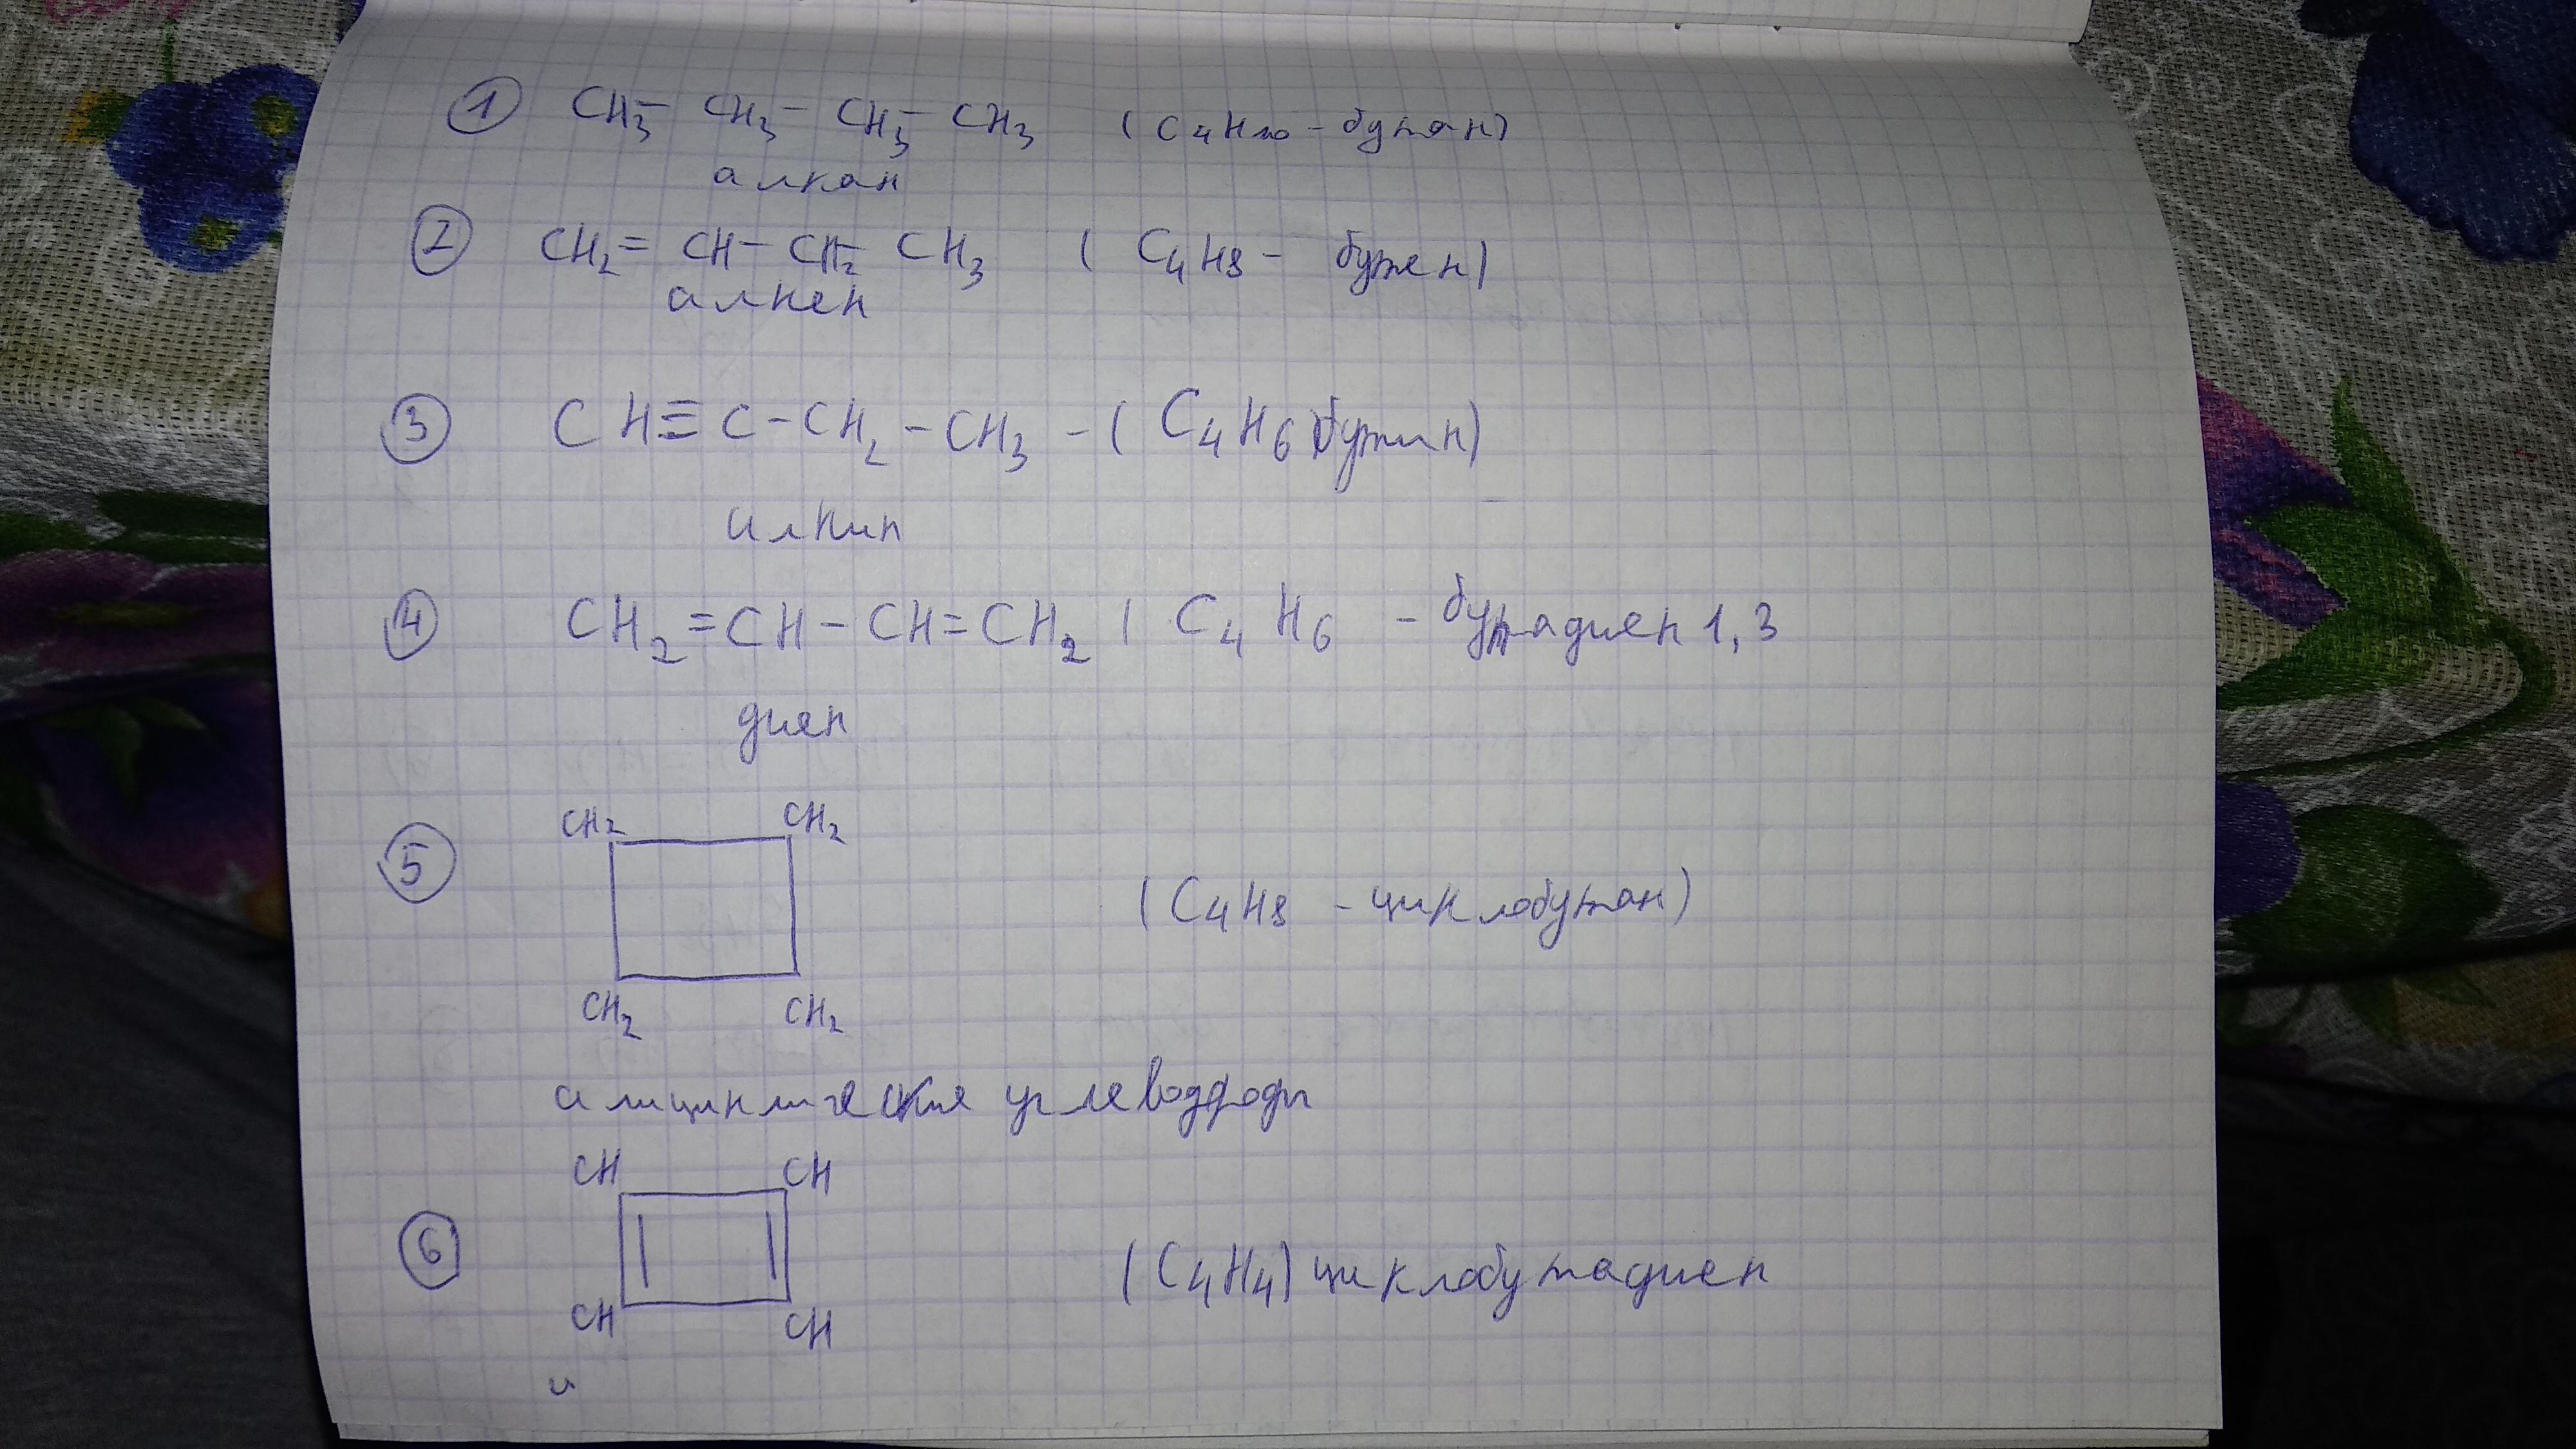 1 CH3 - CH3 - CH3 - CH3 (C4H10 - бутан)
алкан
2 CH2 = CH - CH2 - CH3 (C4H8 - бутен)
алкен
3 CH ≡ C - CH2 - CH3 - (C4H6 бутин)
алкин
4 CH2 = CH - CH = CH2 ( C4H6 - бутадиен 1,3
диен
CH2 CH2
5 (C4H8 - циклобутан)
CH2 CH2
алициклические углеводроды
CH CH
6 (C4H4) циклобутадиен
CH CH
и